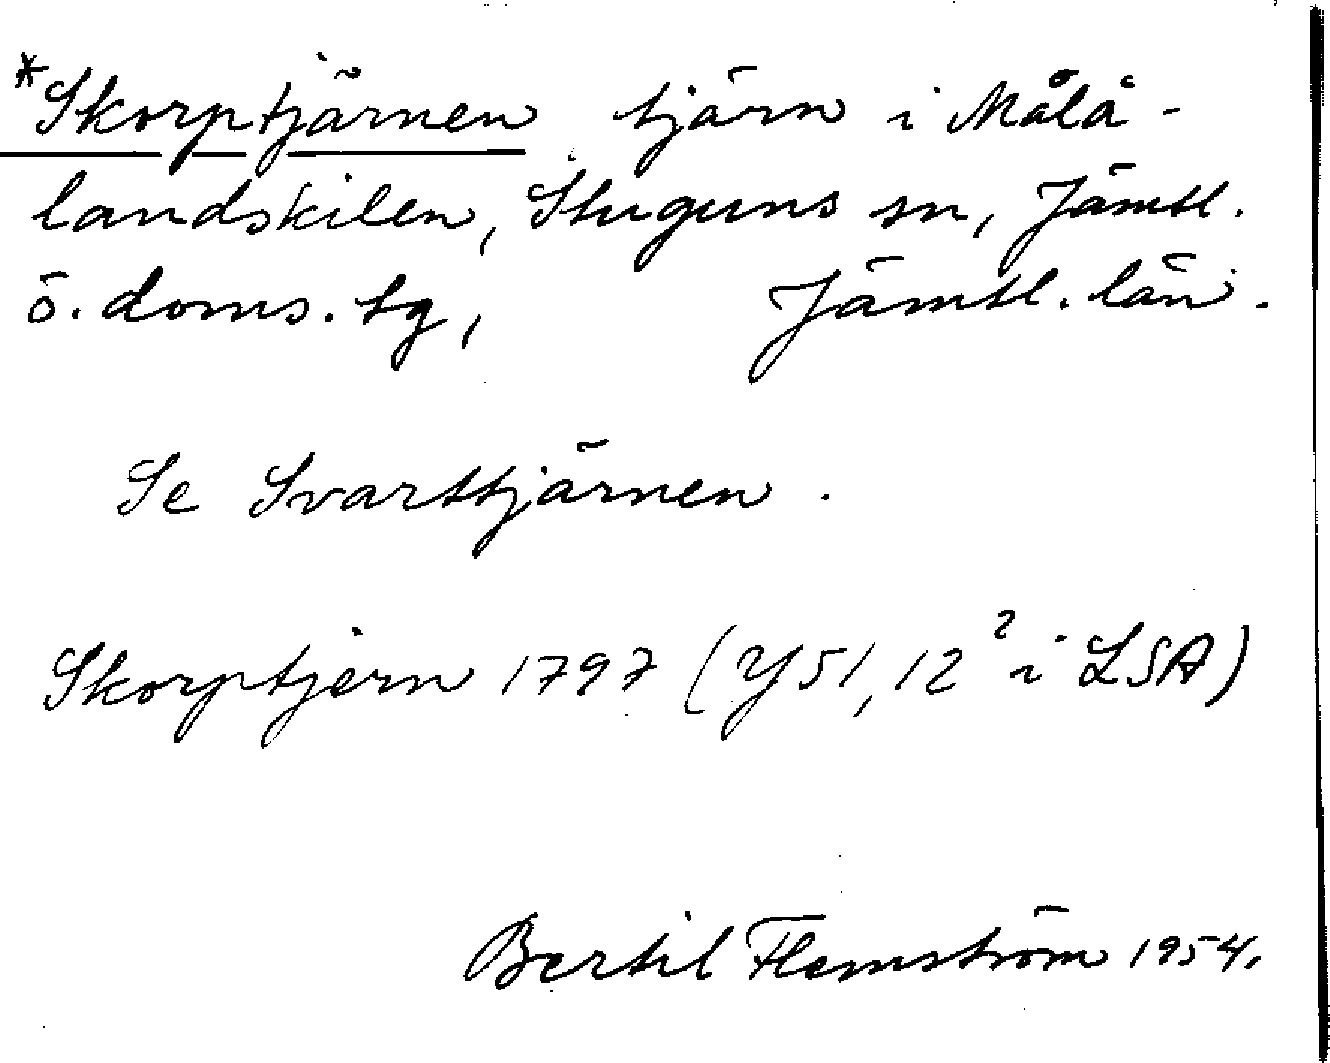 *Skorptjärnen tjärn i Målå-
landskilen, Stuguns sn, Jämtl.
ö. doms. tg, Jämtl. län.
Se Svarttjärnen.
Skorptjern 1797 (Y51, 12² i LSA)
Bertil Flemström 1954.